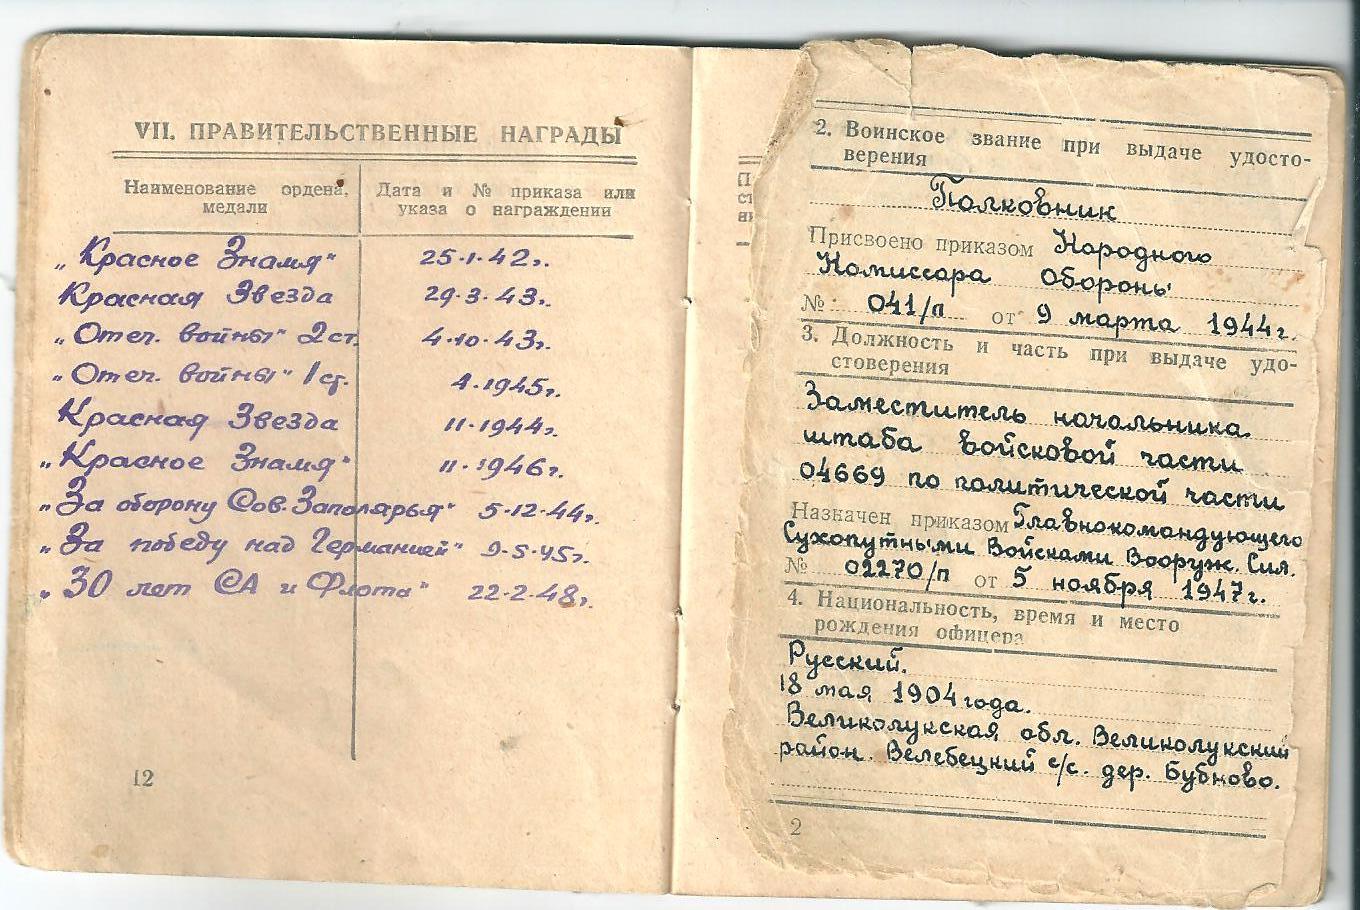 VII. ПРАВИТЕЛЬСТВЕННЫЕ НАГРАДЫ
Наименование ордена, медали
Дата и № приказа или указа о награждении
„Красное Знамя" 25·1·42г.
Красная Звезда 29·3·43г.
„Отеч. войны" 2 ст. 4·10·43г.
„Отеч. войны" 1 ст. 4·1945г.
Красная Звезда 11·1944г.
„Красное Знамя" 11·1946г.
„За оборону Сов. Заполярья" 5·12·44г.
„За победу над Германией" 9·5·45г.
„30 лет СА и Флота" 22·2·48г.
12
2. Воинское звание при выдаче удосто-
верения
Полковник
Присвоено приказом Народного
Комиссара Обороны
№ 041/п от 9 марта 1944г.
3. Должность и часть при выдаче удо-
стоверения
Заместитель начальника
штаба войсковой части
04669 по политической части
Назначен приказом Главнокомандующего
Сухопутными Войсками Вооруж. Сил.
№ 02270/п от 5 ноября 1947г.
4. Национальность, время и место
рождения офицера
Русский.
18 мая 1904 года.
Великолукская обл. Великолукский
район. Велебецкий с/с. дер. Бубново.
2